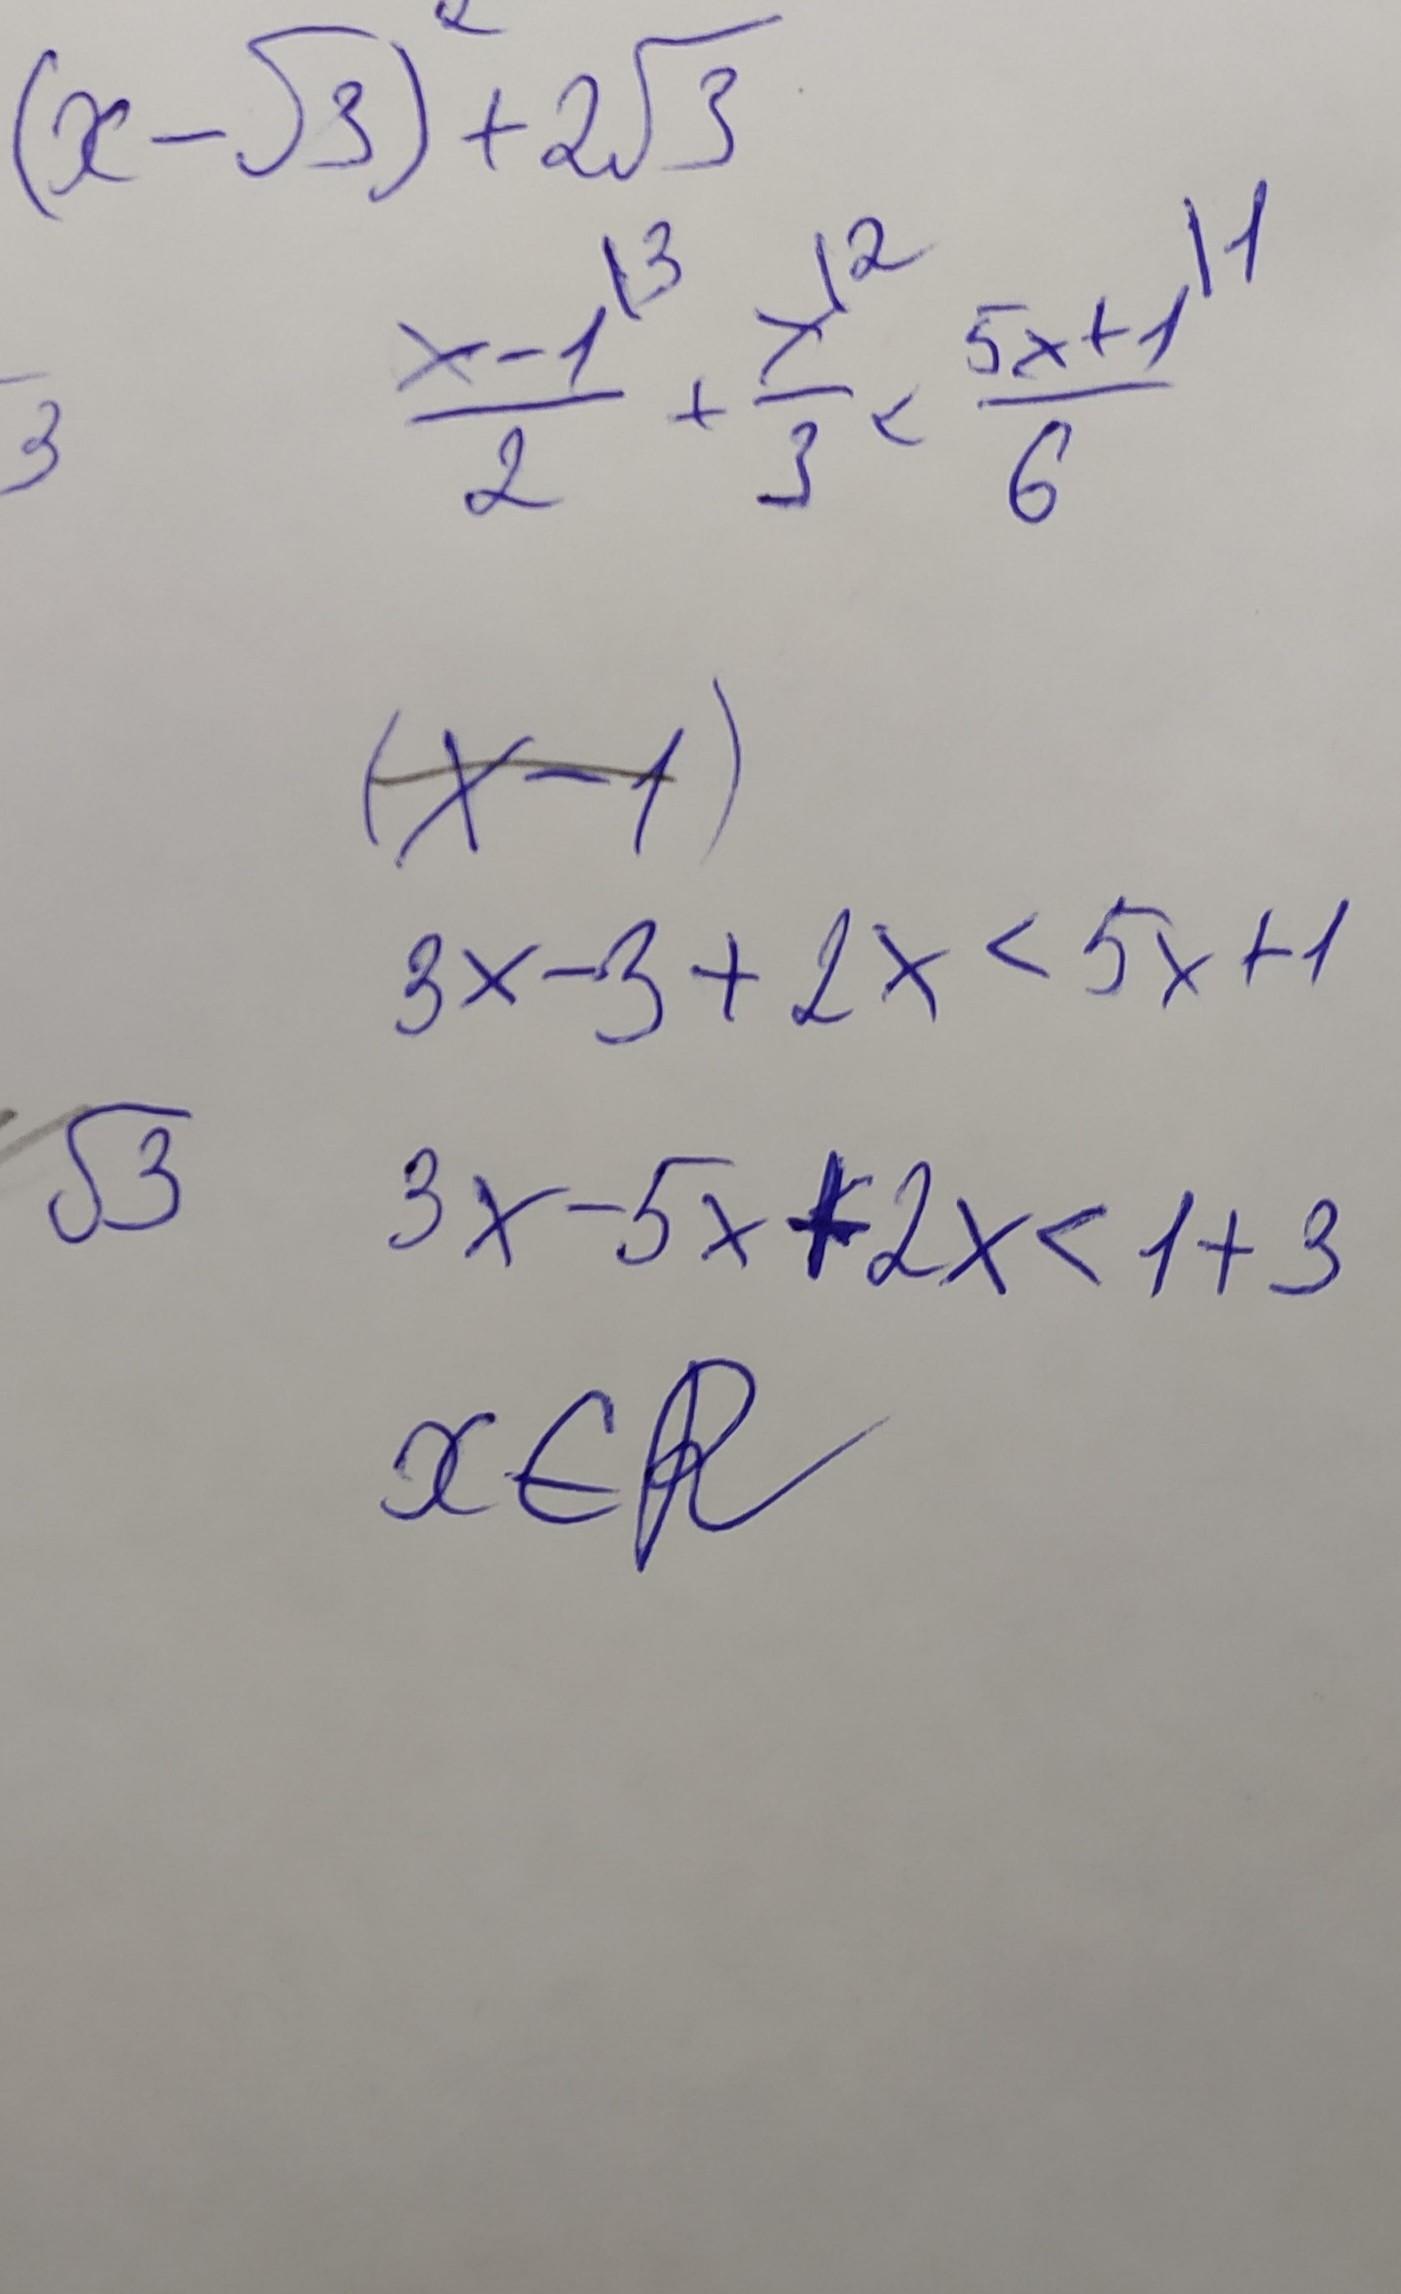 (x-√3)²+2√3
3
x-1\3/2 + x\2/3 < 5x+1\1/6
(x-1)
3x-3+2x<5x+1
√3
3x-5x+2x<1+3
x∈R